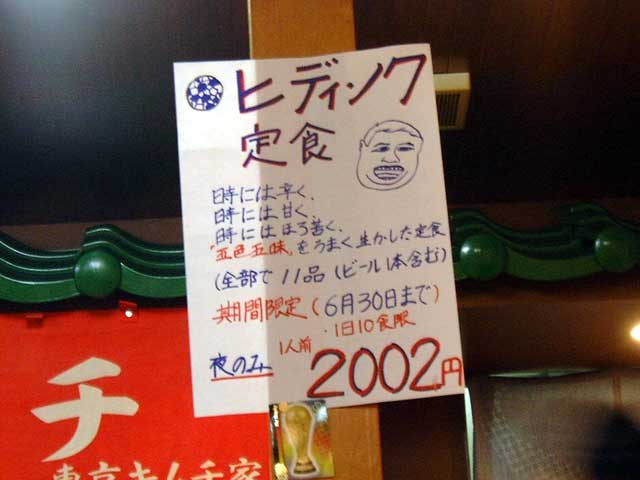 ヒディンク
定食
時には辛く、
時には甘く、
時にはほろ苦く、
"五色五味"をうまく生かした定食
(全部で11品(ビール1本含む)
期間限定(6月30日まで)
・1日10食限
夜のみ
1人前
2002円
チ
東京キムチ家